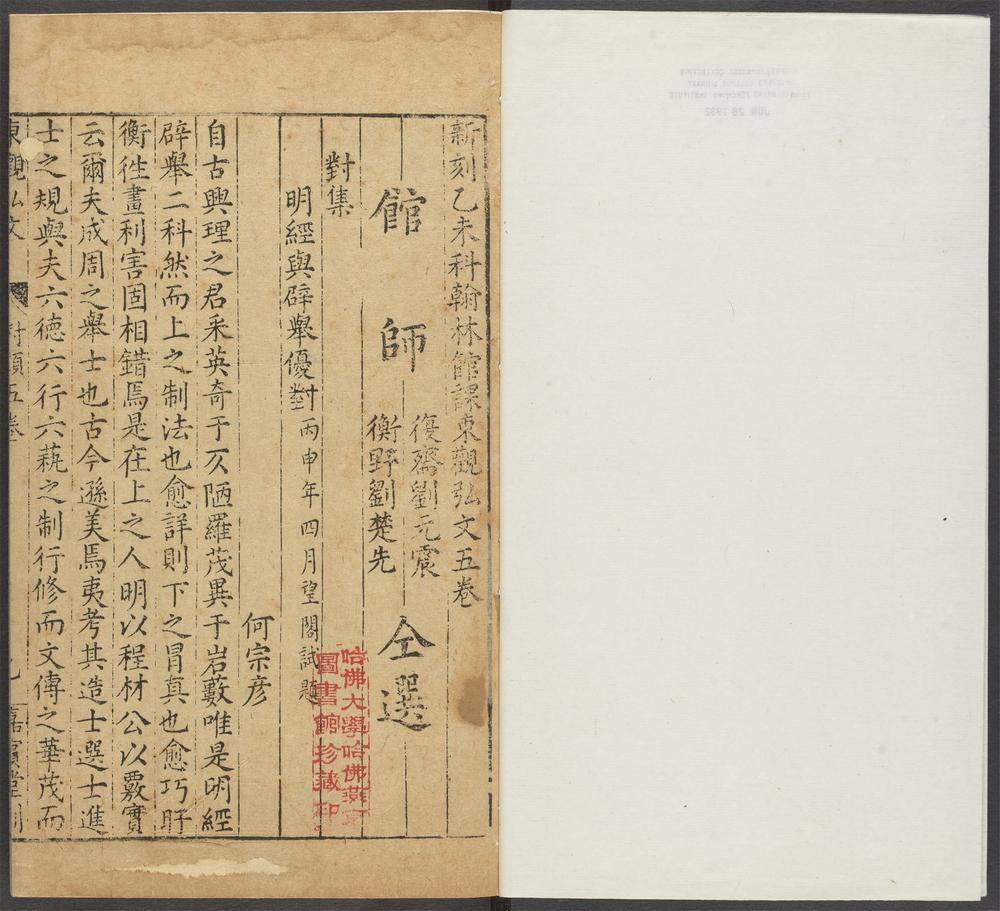 新刻乙未科翰林館課東觀弘文五卷
館師
復齋劉元震
衡野劉楚先
仝選
對集
明經與辟舉優對丙申年四月望閣試題
何宗彦
自古興理之君釆英奇于仄陋羅茂異于岩藪唯是明經
辟舉二科然而上之制法也愈詳則下之冐真也愈巧盱
衡徃畫利害固相錯焉是在上之人明以程材公以覈實
云爾夫成周之舉士也古今遜美焉夷考其造士選士進
士之規與夫六德六行六藝之制行修而文傳之華茂而
東觀弘文
對類五卷
哈佛大學哈佛燕京
圖書館珍藏印
JUN 28 1932